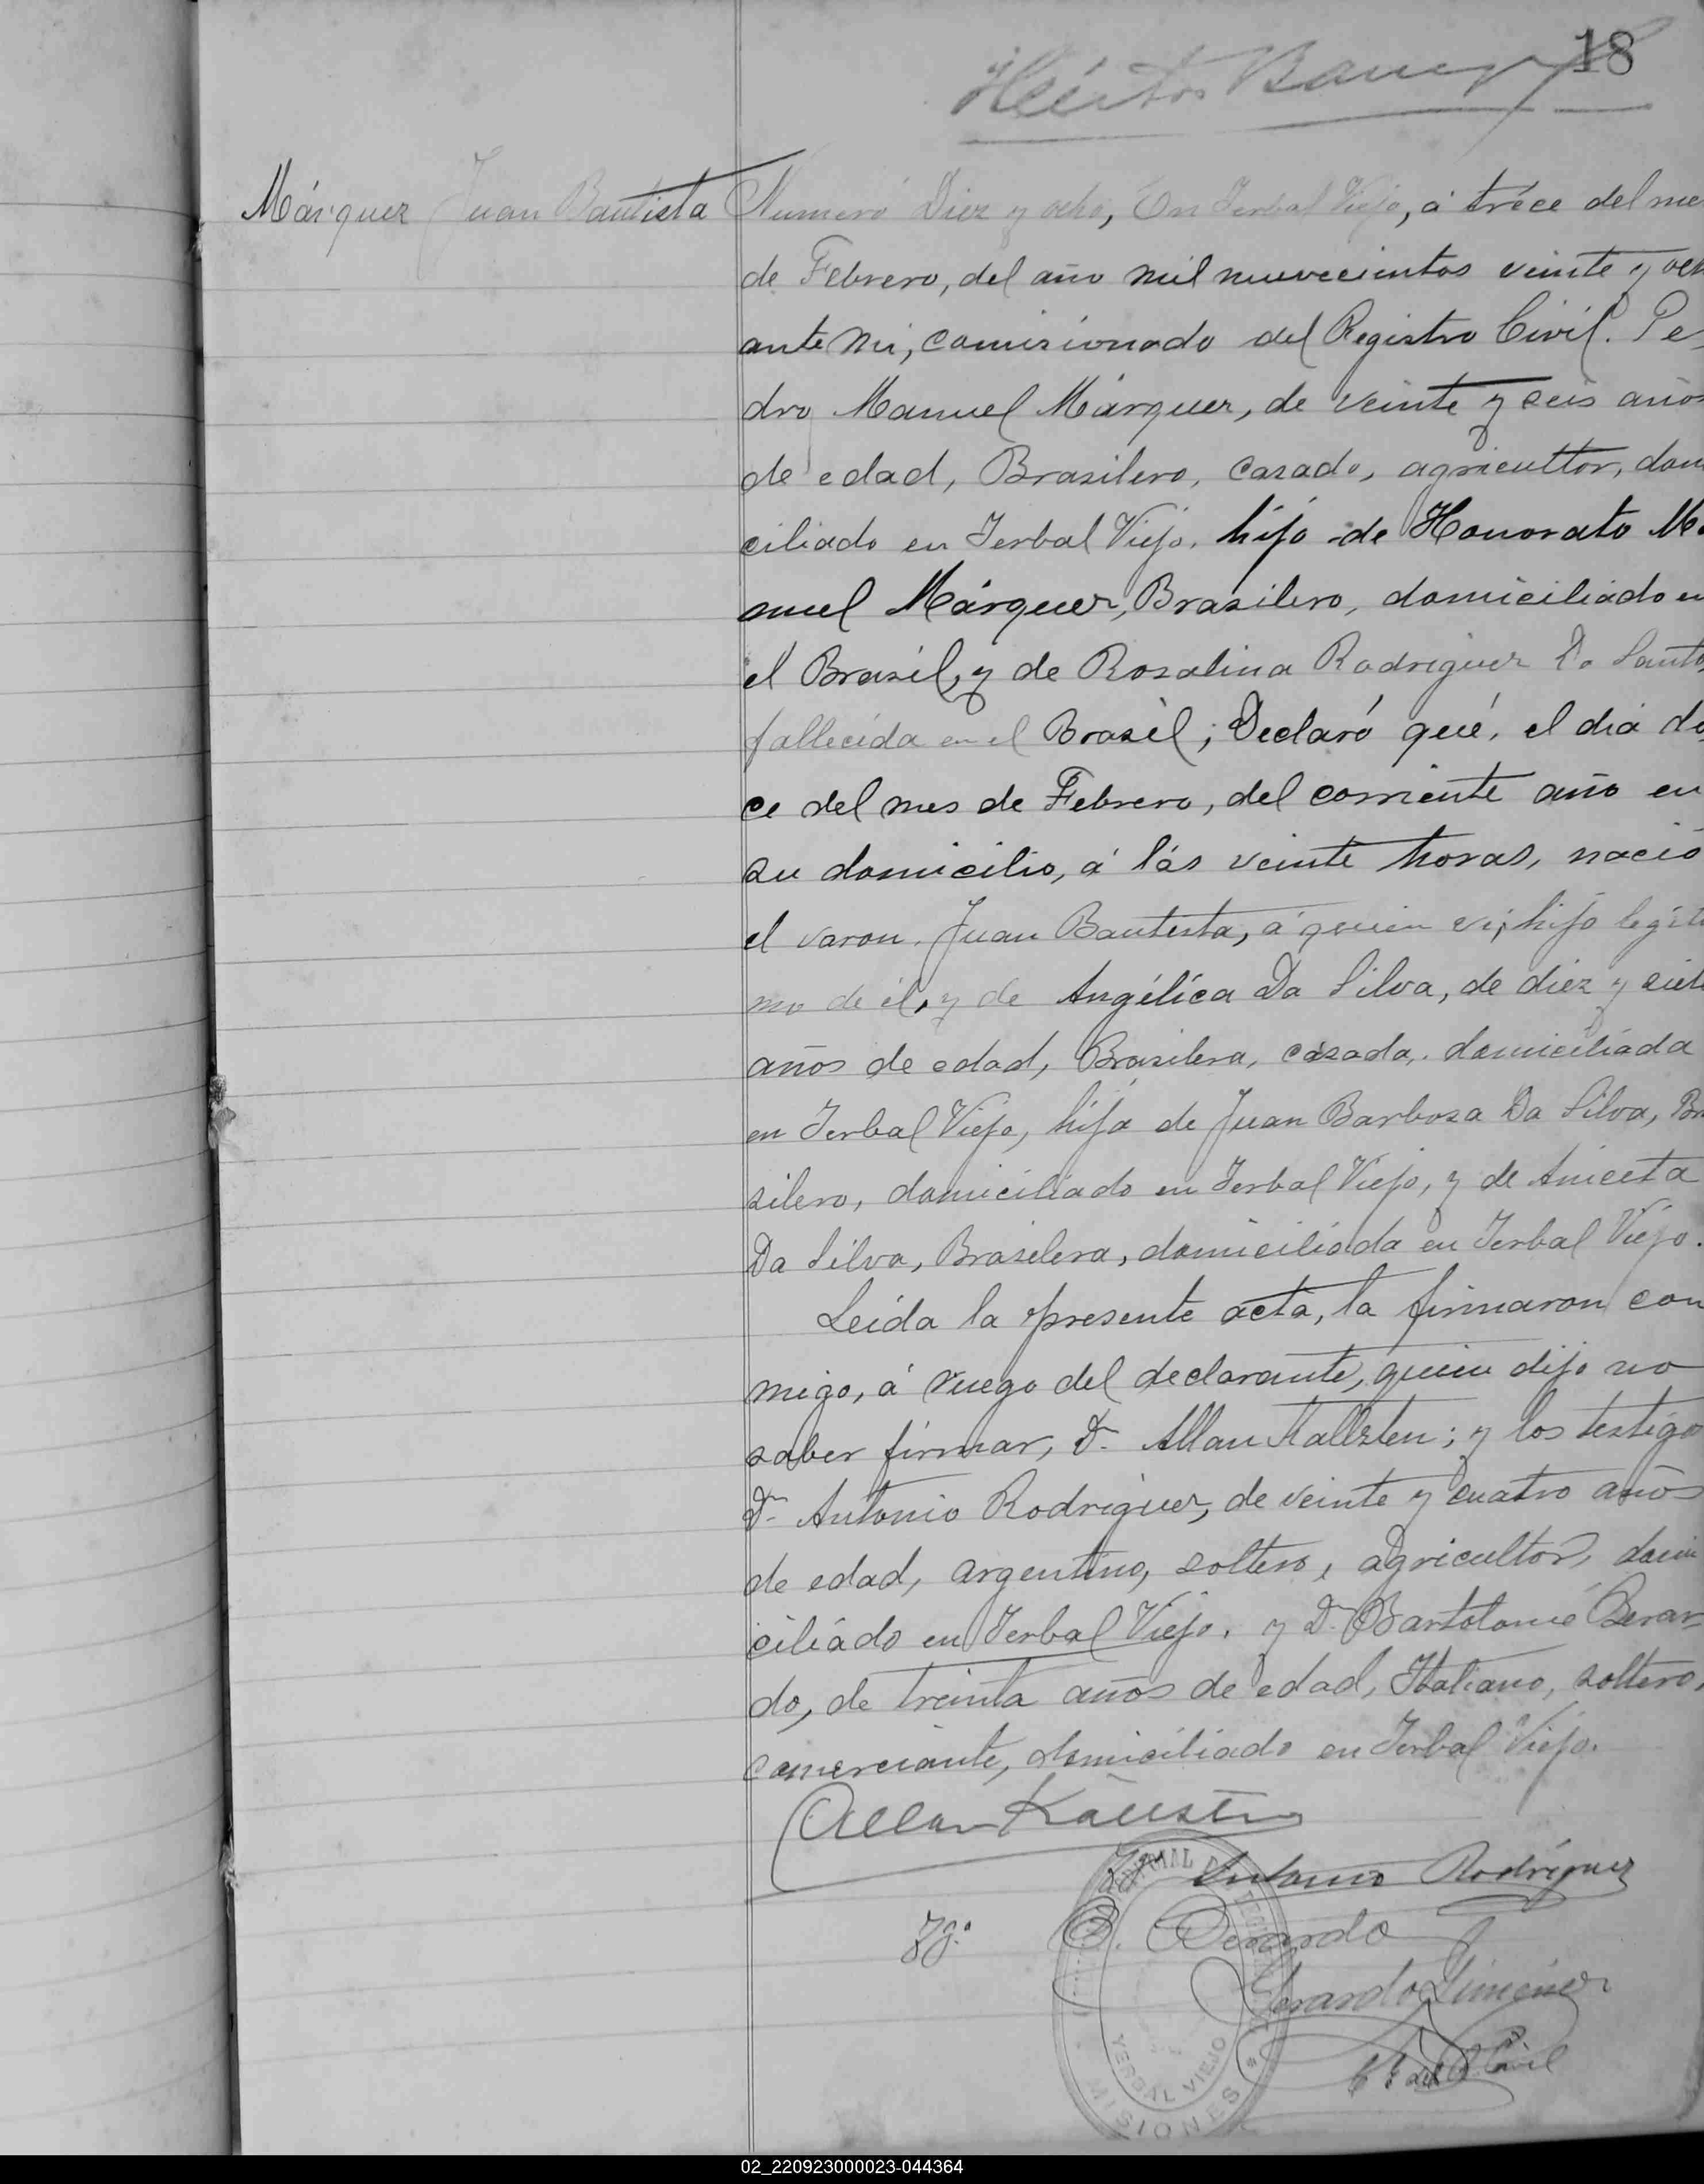 18
Héctor
Márquez Juan Bautista
Numero Diez y ocho, En Yerbal Viejo, á tréce del me
de Febrero, del año mil nuvecientos veinte y och
ante mi, comisionado del Registro Civil. Pe-
dro Manuel Márquez, de veinte y seis años
de edad, Brasilero, casado, agricultor, dom
ciliado en Yerbal Viejo, hijo de Honorato Ma
nuel Márquez, Brasilero, domiciliado en
el Brasil, y de Rosalina Rodriguez Do Santo
fallecida en el Brasil; Declaró qué, el dia do
ce del mes de Febrero, del corriente año en
su domicilio, á lás veinte horas, nació
el varon, Juan Bautista, á quien vi, hijo legiti
mo de él, y de Angélica Da Silva, de diez y siete
años de edad, Brasilera, casada, domiciliada
en Yerbal Viejo, hija de Juan Barboza Da Silva, Bra
silero, domiciliado en Yerbal Viejo, y de Aniceta
Da Silva, Brasilera, domiciliada en Yerbal Viejo.
Leida la presente acta, la firmaron con
migo, á ruego del declarante, quien dijo no
saber firmar, Dn. Allan Kallsten; y los testigo
Dn. Antonio Rodriguez, de veinte y cuatro años
de edad, argentino, soltero, agricultor, domi
ciliádo en Yerbal Viejo, y Dn. Bartolomé Berar-
do, de treinta años de edad, Italiano, soltero,
comerciante, domiciliado en Yerbal Viejo.
Allan Källsten
Antonio Rodríguez
Tgo. B. Berardo
Gerardo Gimenez
del R. Civil
YERBAL VIEJO
MISIONES
02_220923000023-044364